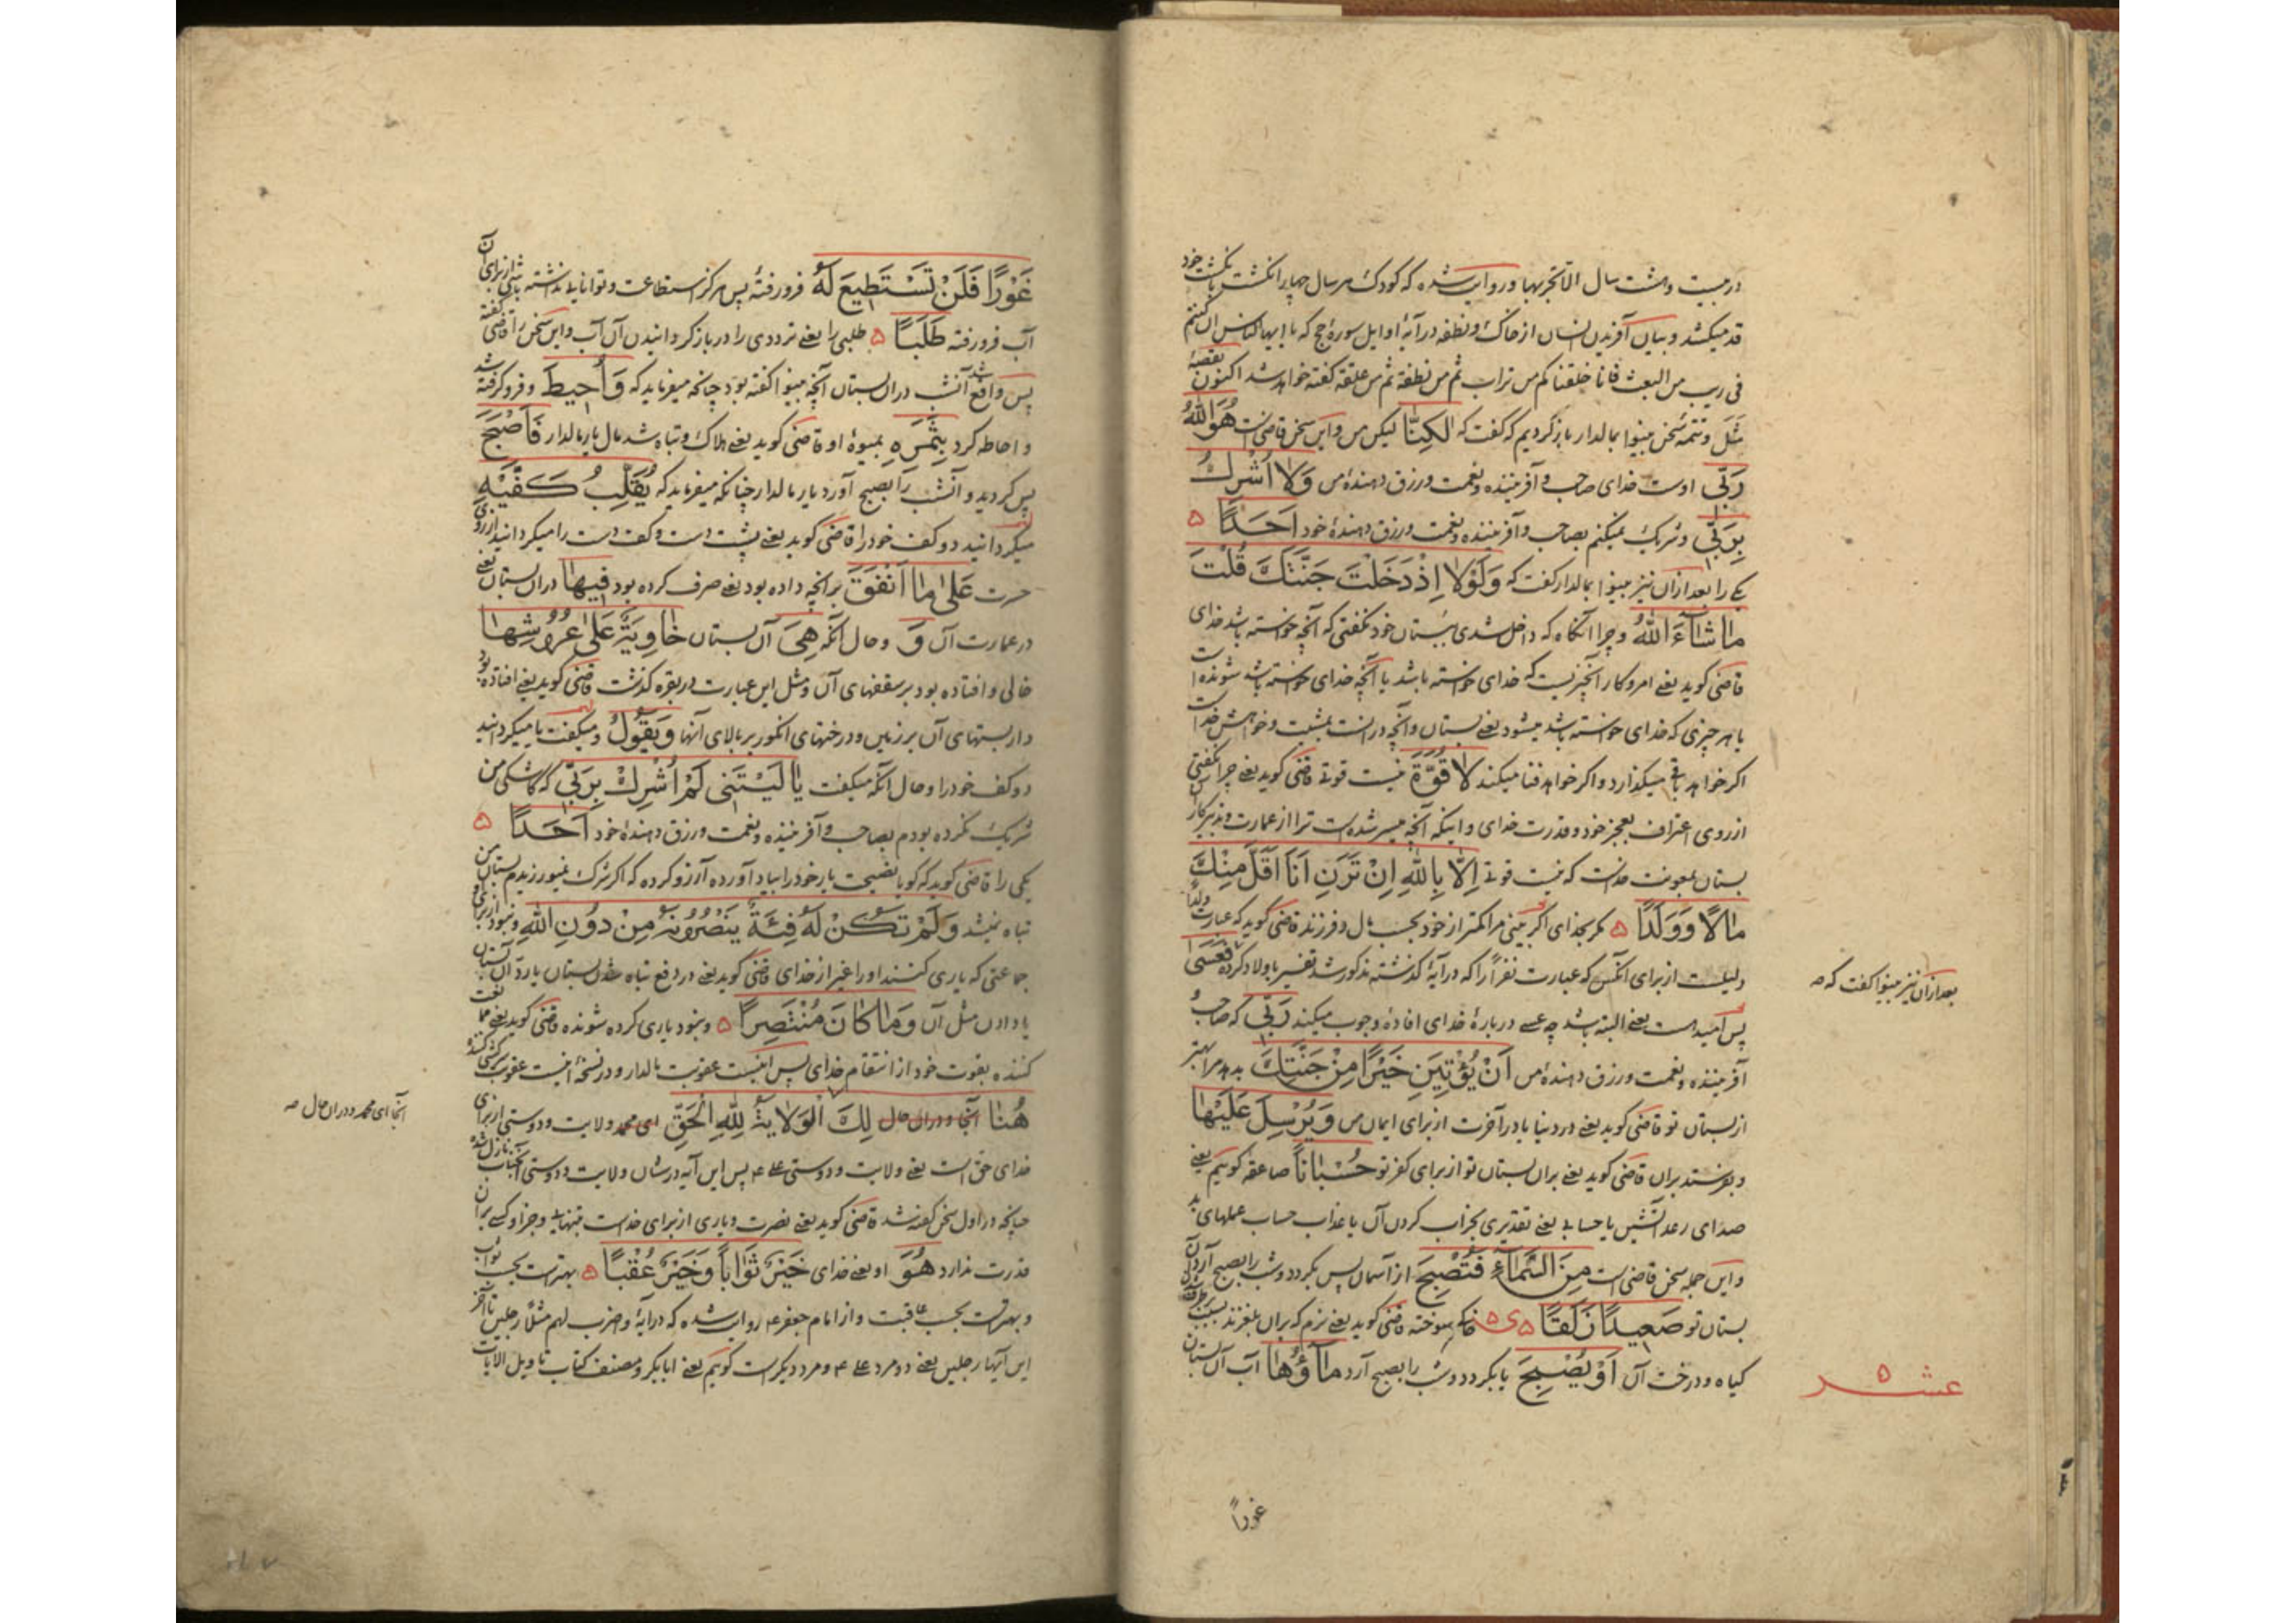 در بیست و هشت سال الا تجربها و روایت شده که کودک هر سال چهار انگشت بانگشت خود
قد میکشد و بیان آفریدن انسان از خاک و نطفه در آیهٔ اوایل سورهٔ حج که یا ایها الناس ان کنتم
فی ریب من البعث فانا خلقناکم من تراب ثم من نطفة ثم من علقة گفته خواهد شد اکنون بقصهٔ
مثل و تتمهٔ سخن بینوا بمالدار باز گردیم که گفت که لٰكِنَّا لیکن من و این سخن قاضی است هُوَ اللّٰهُ
رَبّى اوست خدای صاحب و آفریننده و نعمت و رزق دهندهٔ من وَلَا اُشْرِكُ
بِرَبّى و شریک نمیکنم بصاحب و آفریننده و نعمت و رزق دهندهٔ خود اَحَدًا ۵
یکی را بعد از آن نیز بینوا بمالدار گفت که وَلَوْلَا اِذْ دَخَلْتَ جَنَّتَكَ قُلْتَ
مَا شَاءَ اللّٰهُ و چرا آنگاه که داخل شدی ببستان خود نگفتی که آنچه خواسته باشد خدای
قاضی گوید یعنی امر و کار آنچیزیست که خدای خواسته باشد یا آنچه خدای خواسته باشد شونده است
یا هر چیزی که خدای خواسته باشد میشود یعنی بستان و آنچه در انست بمشیت و خواهش خداست
اگر خواهد باقی میگذارد و اگر خواهد فنا میکند لَا قُوَّةَ نیست قوتی قاضی گوید یعنی چرا نگفتی
از روی اعتراف بعجز خود و قدرت خدای و اینکه آنچه میسر شده است ترا از عمارت و تدبیر کار
بستان بمعونت خداست که نیست قوتی اِلَّا بِاللّٰهِ اِنْ تَرَنِ اَنَا اَقَلَّ مِنْكَ
مَالًا وَوَلَدًا ۵ مگر بخدای اگر بینی مرا کمتر از خود بحسب مال و فرزند قاضی گوید که عبارت ولداً
دلیلست از برای آنکس که عبارت نفراً را که در آیهٔ گذشته مذکور شد تفسیر باولاد کرده فَعَسٰى
پس امید است یعنی البته باشد چه عسی دربارهٔ خدای افادهٔ وجوب میکند رَبّى که صاحب و
آفریننده و نعمت و رزق دهندهٔ من اَنْ يُؤْتِيَنِ خَيْرًا مِنْ جَنَّتِكَ بدهد مرا بهتر
از بستان تو قاضی گوید یعنی در دنیا یا در آخرت از برای ایمان من وَيُرْسِلَ عَلَيْهَا
و بفرستد بران قاضی گوید یعنی بران بستان تو از برای کفر تو حُسْبَانًا صاعقه گوییم یعنی
صدای رعد آتشین یا حسابی یعنی تقدیری بخراب کردن آن یا عذاب حساب عملهای بد
و این جمله سخن قاضی است مِنَ السَّمَاءِ فَتُصْبِحَ از آسمان پس بگردد و شب را بصبح آرد آن
بستان تو صَعِيدًا زَلَقًا ۵ خاکی سوخته قاضی گوید یعنی نرم که بران بلغزند بسبب
گیاه و درخت آن اَوْ يُصْبِحَ یا بگردد و شب را بصبح آرد مَاؤُهَا آب آن بستان
بعد از آن نیز بینوا گفت که صح
عشر ۵
غوراً
غَوْرًا فَلَنْ تَسْتَطِيعَ لَهُ فرو رفته پس هرگز استطاعت و توانایی نداشته باشی از برای آن
آب فرو رفته طَلَبًا ۵ طلبی را یعنی ترددی را در باز گردانیدن آن آب و این سخن را قاضی گفته
پس واقع شد آنشب در ان بستان آنچه بینوا گفته بود چنانکه میفرماید که وَاُحِيطَ و فرو گرفته شد
و احاطه کرد بِثَمَرِهِ بمیوهٔ او قاضی گوید یعنی هلاک و تباه شد مال یار مالدار فَاَصْبَحَ
پس گردید و آنشب را بصبح آورد یار مالدار چنانکه میفرماید که يُقَلِّبُ كَفَّيْهِ
میگردانید دو کف خود را قاضی گوید یعنی پشت دست و کف دست را میگردانید از روی
حسرت عَلٰى مَا اَنْفَقَ بر آنچه داده بود یعنی صرف کرده بود فِيهَا در ان بستان یعنی
در عمارت آن وَ و حال آنکه هِىَ آن بستان خَاوِيَةٌ عَلٰى عُرُوشِهَا
خالی و افتاده بود بر سقفهای آن و مثل این عبارت در بقره گذشت قاضی گوید یعنی افتاده بود
داربستهای آن بر زمین و درختهای انگور بر بالای آنها وَيَقُولُ و میگفت یا میگردانید
دو کف خود را و حال آنکه میگفت يَا لَيْتَنِى لَمْ اُشْرِكْ بِرَبّى که کاشکی من
شریک نکرده بودم بصاحب و آفریننده و نعمت و رزق دهندهٔ خود اَحَدًا ۵
یکی را قاضی گوید که گویا نصیحت یار خود را بیاد آورده آرزو کرده که اگر شرک نمیورزیدم بستان من
تباه نمیشد وَلَمْ تَكُنْ لَهُ فِئَةٌ يَنْصُرُونَهُ مِنْ دُونِ اللّٰهِ و نبود از برای او
جماعتی که یاری کنند او را غیر از خدای قاضی گوید یعنی در دفع تباه شدن بستان یا رد آن بستان
یا دادن مثل آن وَمَا كَانَ مُنْتَصِرًا ۵ و نبود یاری کرده شونده قاضی گوید یعنی
کننده بقوت خود از انتقام خدای پس اینست عقوبت مالدار و در نسخه اینست عقوبت
هُنَا آنجا و در ان حال لِكَ الْوَلَايَةُ لِلّٰهِ الْحَقِّ ای محمد ولایت و دوستی از برای
خدای حق است یعنی ولایت و دوستی علی ع پس این آیه در شان ولایت و دوستی آنجناب نازل شد
چنانکه در اول سخن گفته شد قاضی گوید یعنی نصرت و یاری از برای خداست بتنهایی و جز او کسی بر آن
قدرت ندارد هُوَ او یعنی خدای خَيْرٌ ثَوَابًا وَخَيْرٌ عُقْبًا ۵ بهتر است بحسب ثواب
و بهتر است بحسب عاقبت و از امام جعفر ع روایت شده که در آیهٔ و اضرب لهم مثلا رجلین تا آخر
این آیها رجلین یعنی دو مرد علی ع و مرد دیگر است گوییم یعنی ابا بکر و مصنف کتاب تاویل الایات
آنجا ای محمد و در ان حال صح